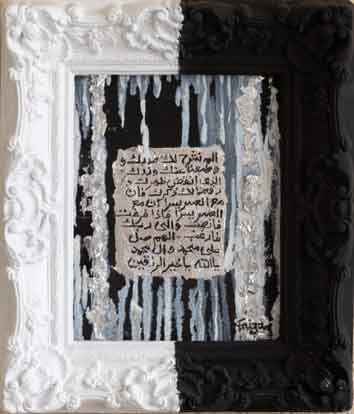 الم نشرح لك صدرك و
وضعنا عنك وزرك
الذى انقض ظهرك و
رفعنا لك ذكرك فان
مع العسر يسرا ان مع
العسر يسرا فاذا فرغت
فانصب والى ربك
فارغب اللهم صل
على محمد وال محمد
ياالله ياخير الرزقين